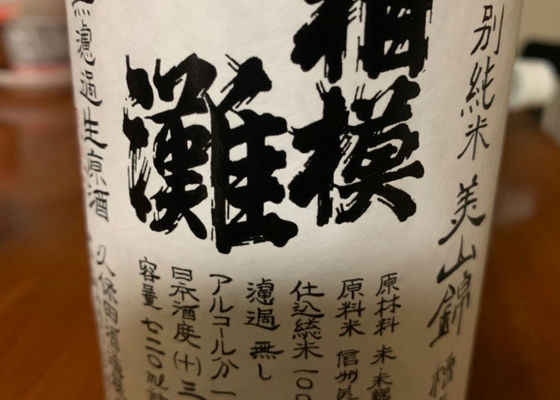 別純米 美山錦 槽
相模
灘
原材料 米・米麹
原料米 信州美
仕込総米 一〇〇
濾過 無し
アルコール分 一
日本酒度 (十) 三
容量 七二〇ml 詰
無濾過生原酒 久保田酒造